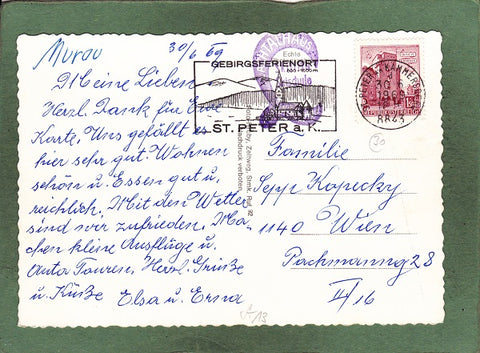 Murau
30/6 69
Meine Lieben,
Herzl. Dank für Eure
Karte, Uns gefällt es
hier sehr gut. Wohnen
schön u. Essen gut u.
reichlich. Mit den Wetter
sind wir zufrieden. Ma-
chen kleine Ausflüge u.
Auto Touren, Herzl. Grüße
u. Küße Elsa u. Erna
GEBIRGSFERIENORT
ST. PETER a. K.
ST. PETER a. KAMMERSBERG
1969
8843
Familie
Sepp Kopecky
1140 Wien
Pachmanng 28
II/16
30